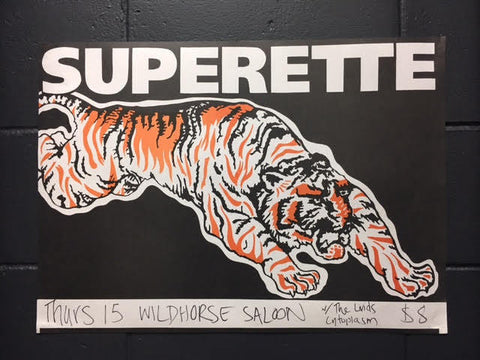 SUPERETTE
Thurs 15 WILDHORSE SALOON w/ The Lvids $8
Cytoplasm